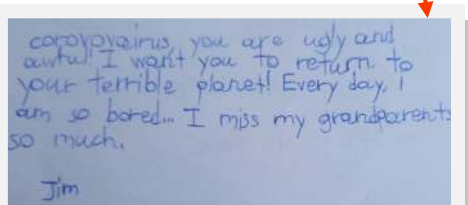 corovovairus, you are ugly and
awful! I want you to return to
your terrible planet! Every day, I
am so bored... I miss my grandparents
so much.
Jim